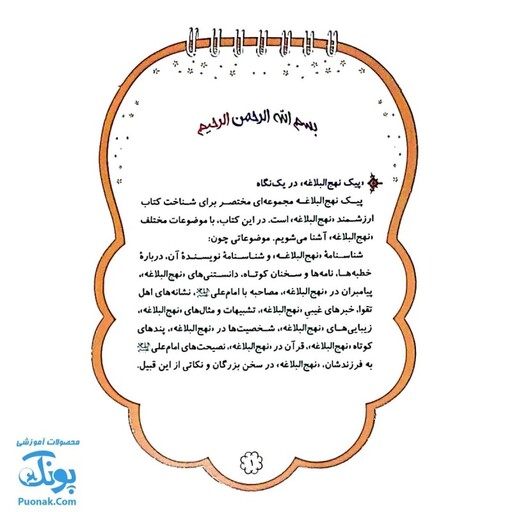 بسم الله الرحمن الرحیم
«پیک نهج‌البلاغه» در یک‌نگاه
پیک نهج‌البلاغه مجموعه‌ای مختصر برای شناخت کتاب
ارزشمند «نهج‌البلاغه» است. در این کتاب، با موضوعات مختلف
«نهج‌البلاغه» آشنا می‌شویم. موضوعاتی چون:
شناسنامهٔ «نهج‌البلاغه» و شناسنامهٔ نویسندهٔ آن، دربارهٔ
خطبه‌ها، نامه‌ها و سخنان کوتاه، دانستنی‌های «نهج‌البلاغه»،
پیامبران در «نهج‌البلاغه»، مصاحبه با امام‌علی، نشانه‌های اهل
تقوا، خبرهای غیبی «نهج‌البلاغه»، تشبیهات و مثال‌های «نهج‌البلاغه»،
زیبایی‌های «نهج‌البلاغه»، شخصیت‌ها در «نهج‌البلاغه»، پندهای
کوتاه «نهج‌البلاغه»، قرآن در «نهج‌البلاغه»، نصیحت‌های امام‌علی
به فرزندشان، «نهج‌البلاغه» در سخن بزرگان و نکاتی از این قبیل.
۱
محصولات آموزشی
پونک
Puonak.Com